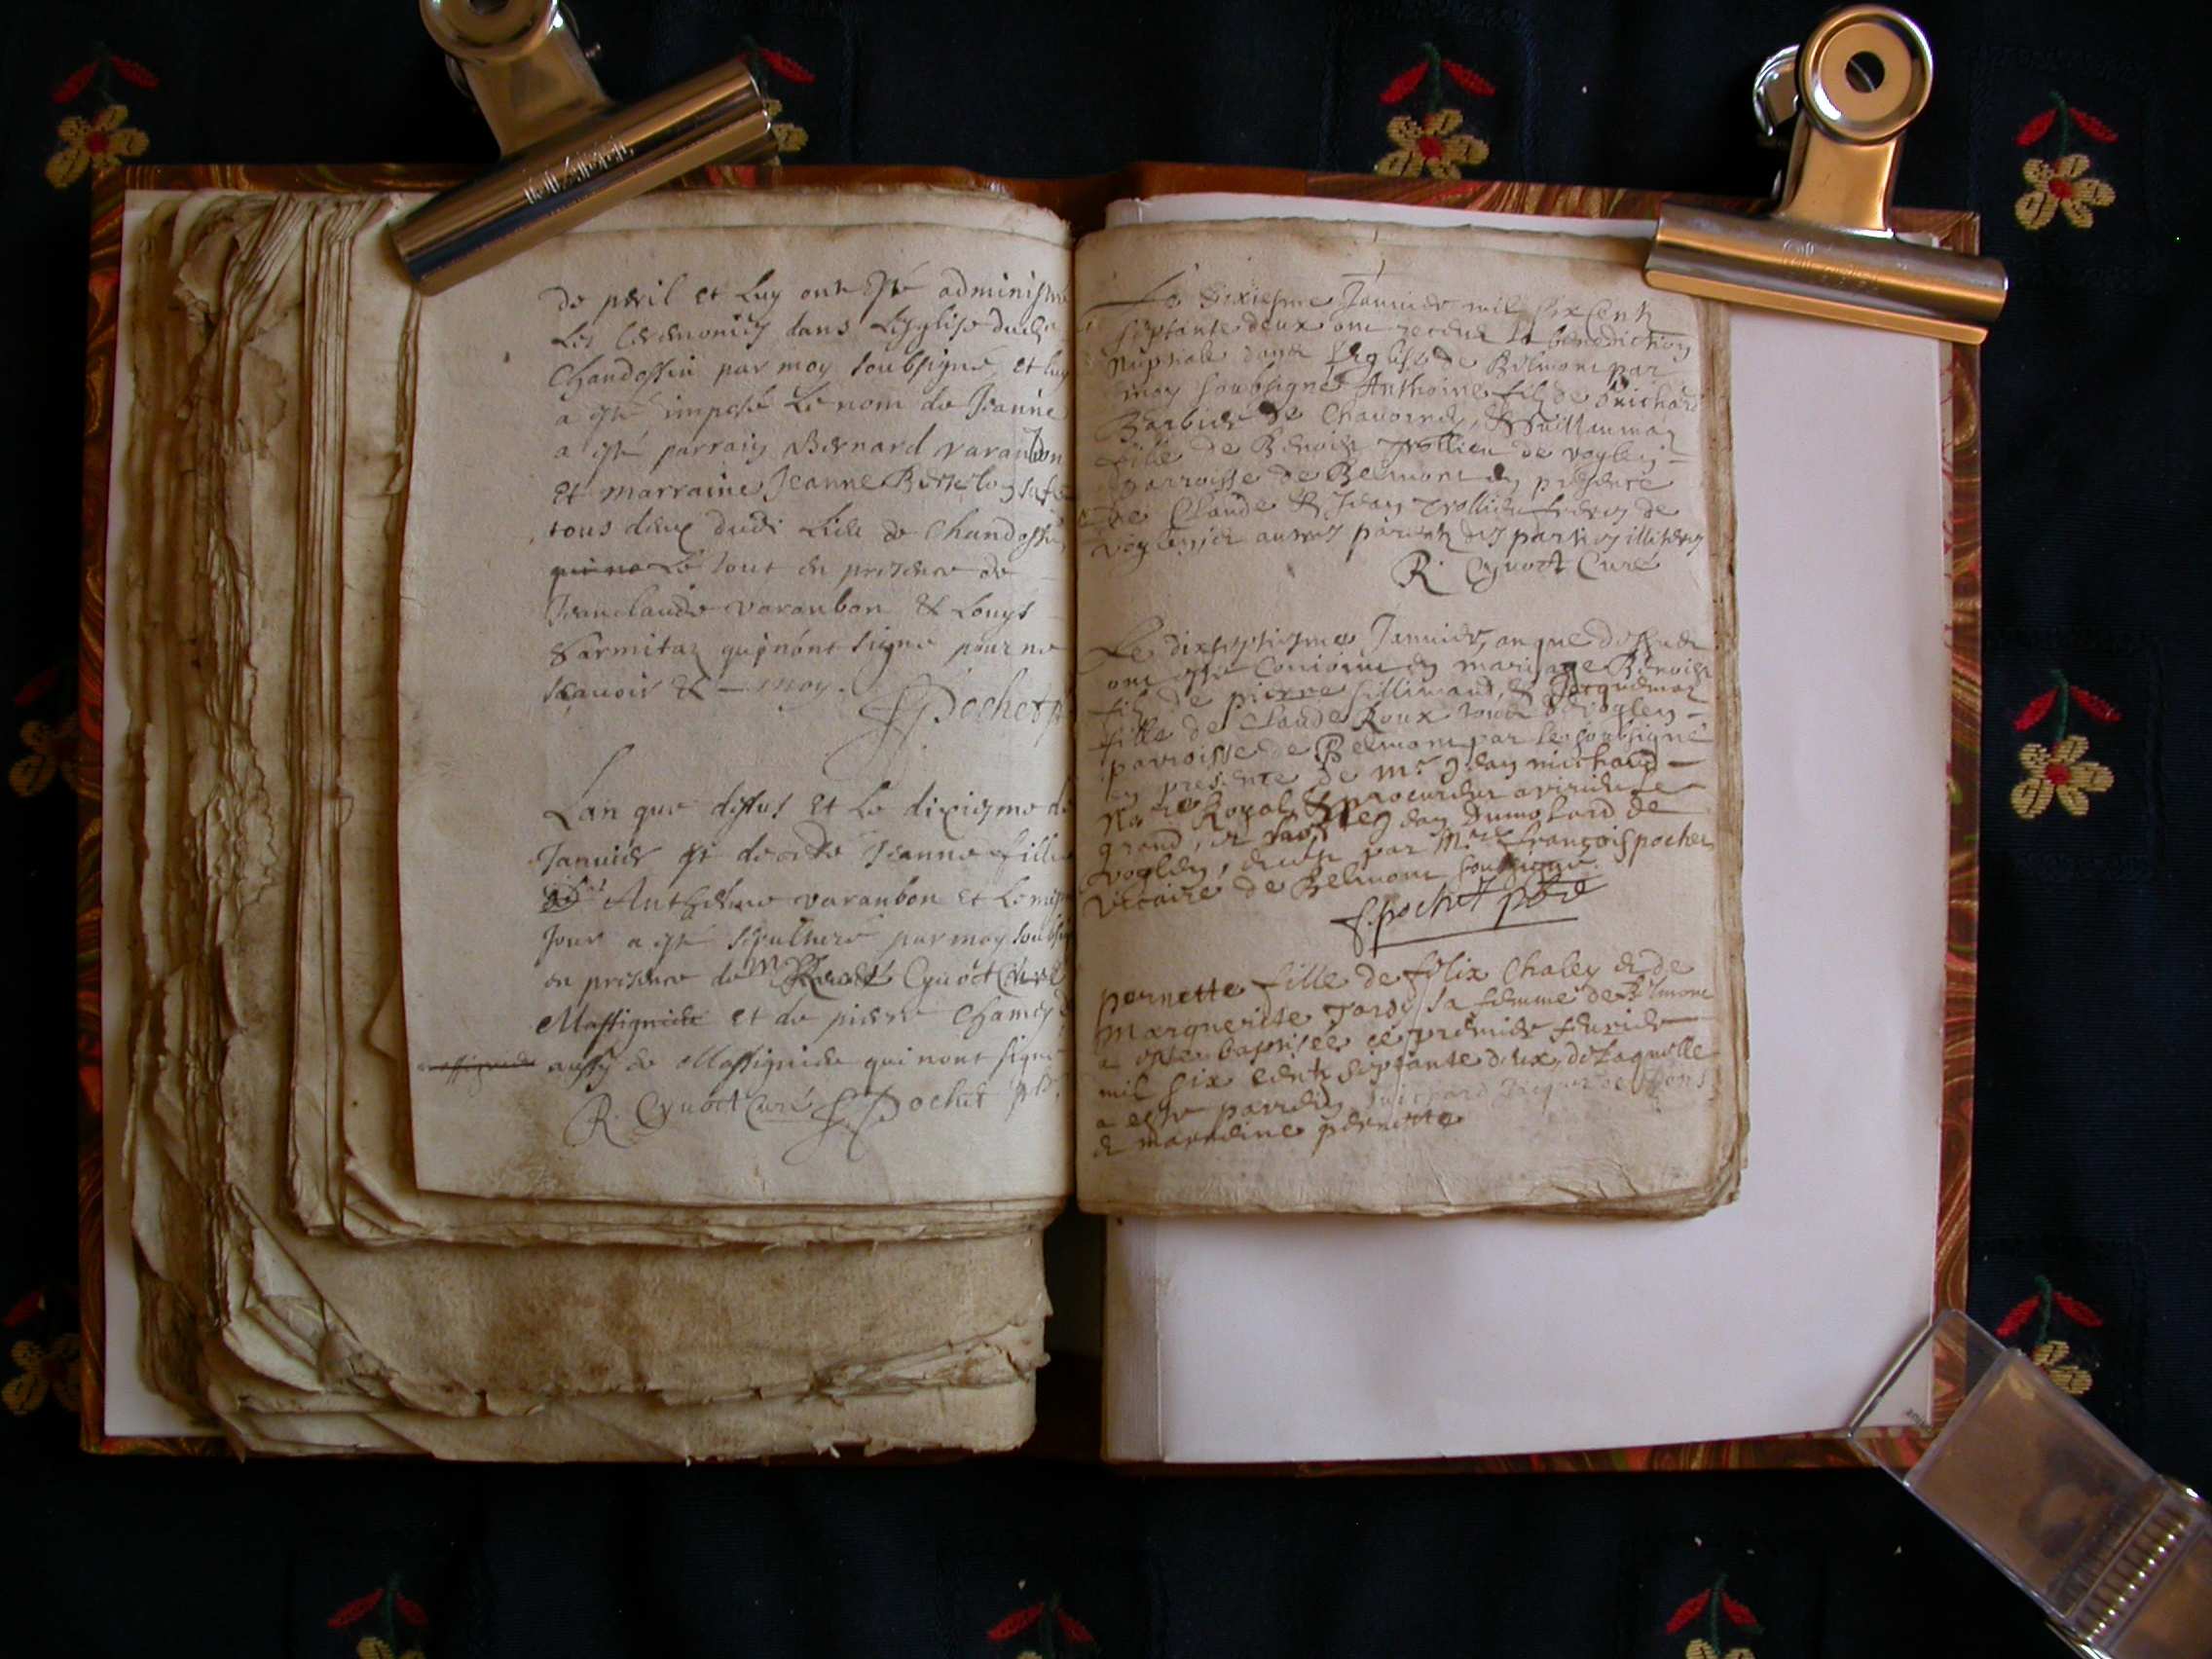 de peril et luy ont esté administré
les ceremonies dans l'esglise dudi
Chandossin par moy soubsigné, et luy
a esté imposé le nom de Jeanne
a esté parrain Bernard varambon
et marraine Jeanne sa fe
tous deux dudi lieu de Chandossin
le tout en presence de
Jean claude varanbon & Louys
qui n'ont signe pour ne
sçavoir & moy.
F Pochet p
Lan que dessus et le dixiesme de
Januier est decede Jeanne fille
Anthelme varanbon et le mesme
Jour a esté sepulturé par moy soubsig
en presence de Mre Cynoct Curé
Massigneu et de pierre Chamey
aussy de Massigneu qui nont signe
R. Cynoct Curé F Pochet pbr
Le sixiesme Januier mil six Cents
septante deux ont receue la benediction
nuptiale dans l'Eglise de Belmont par
moy soubsigné Anthoine filz de
Barbier de Chauornay, & Guillaumaz
fille de Benoit Trollieu de voglen
parroisse de Belmont en presence
de Claude & Jean Trollieu freres de
voglen, et autres parents des parties illiteres
R. Cynoct Curé
Le dixseptiesme Januier, an que dessus
ont esté Conioint en mariage Benoist
filz de pierre & Jacquemaz
fille de Claude Roux tous de voglen
parroisse de Belmont par le soubsigné
en presence de Mr. Jean michaud
Nore Royal & procureur
grand, et Jean Dumolard de
voglen, par Mre françois pochet
vicaire de Belmont soubsigné.
F. pochet pbre
pernette fille de felix Chaley & de
Marguerite Tardy sa femme de Belmont
a este baptisée ce premier feurier
mil six cents septante deux, de laquelle
a esté parrein Jacques
& marreine pernette